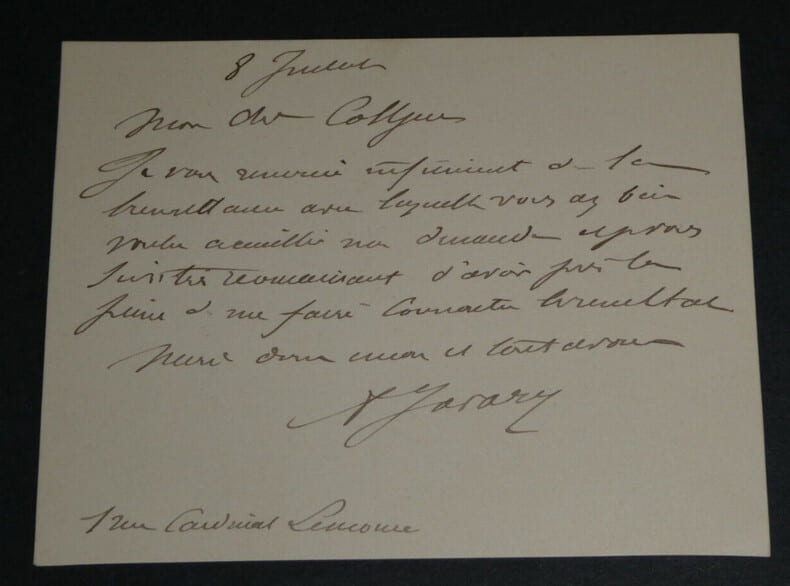 8 Juillet
Mon cher Collègue
Je vous remercie infiniment de la
bienveillance avec laquelle vous avez bien
voulu accueillir ma demande et je vous
suis très reconnaissant d'avoir pris la
peine de me faire connaître le résultat
Merci donc encore et tout à vous
A Javary
1 rue Cardinal Lemoine